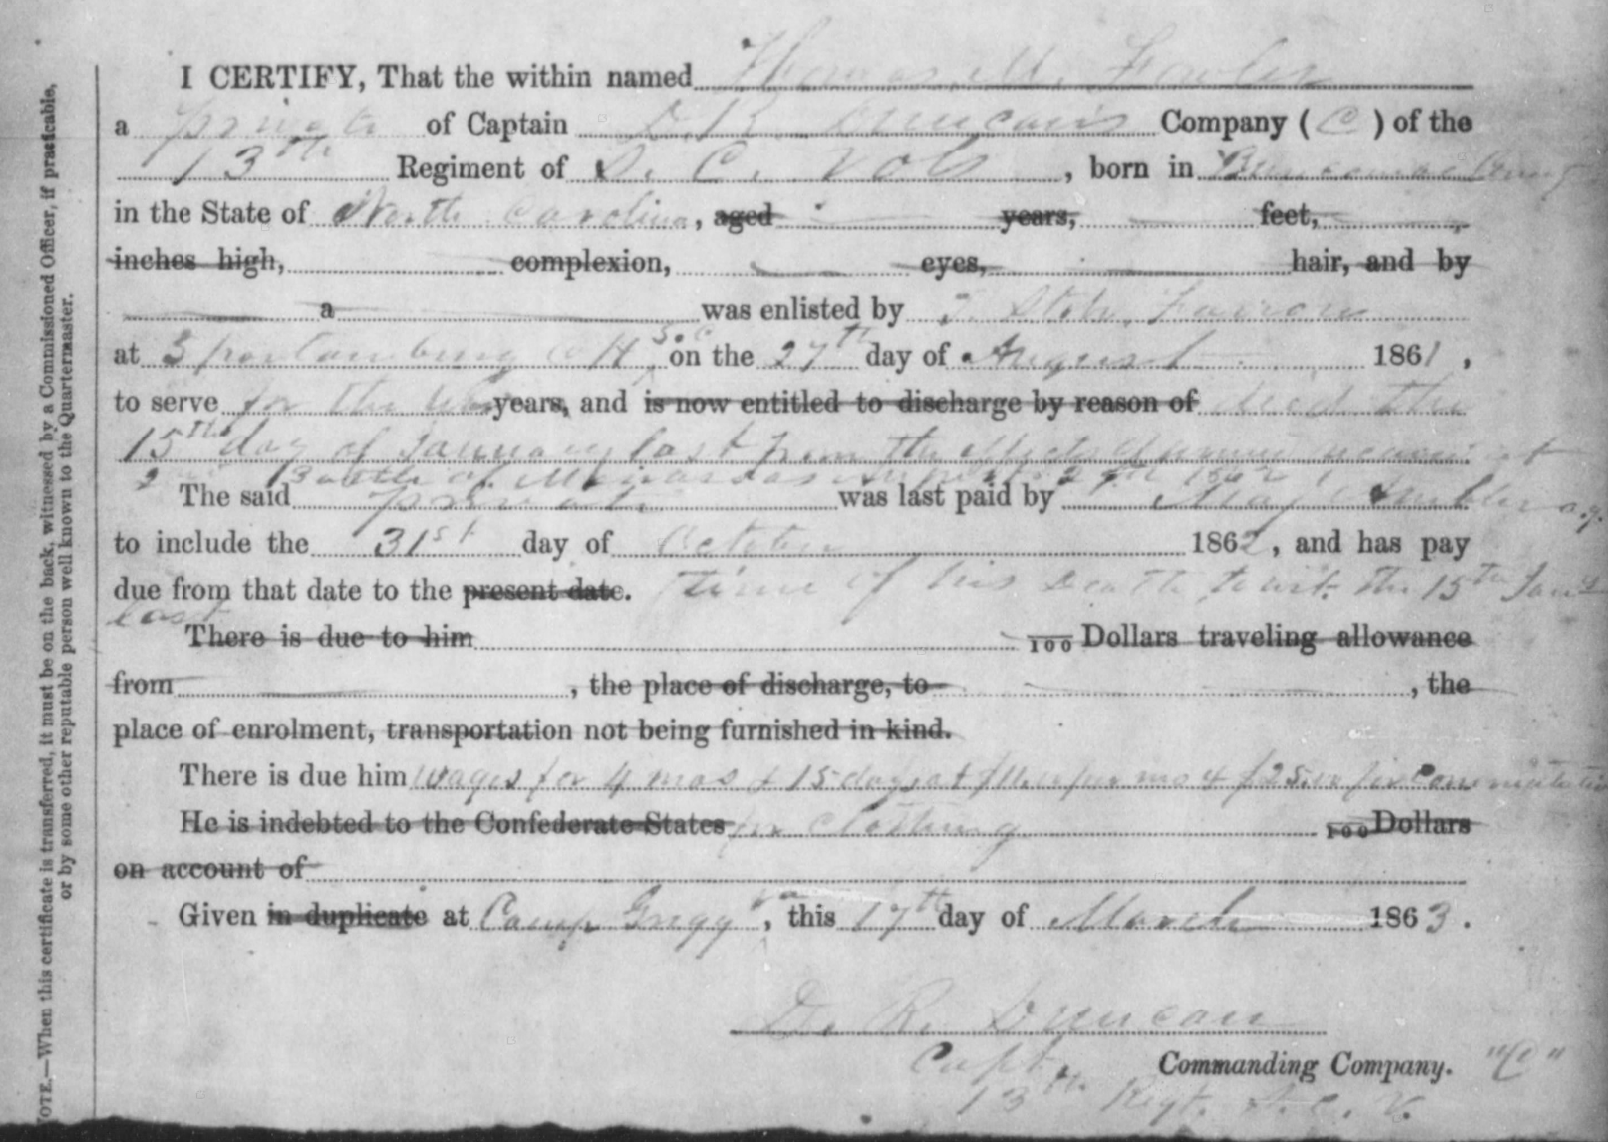 I CERTIFY, That the within named Thomas M. Fowler
a private of Captain D. R. Duncan's Company ( C ) of the
13th Regiment of S. C. Vols , born in Buncombe County
in the State of North Carolina, aged years, feet,
inches high, complexion, eyes, hair, and by
a was enlisted by T. Stobo Farrow
at Spartanburg C H S. C on the 27th day of August 1861 ,
to serve for the War years, and is now entitled to discharge by reason of died the
15th day of January last from the effects of wound at
2nd Battle of Manassas 29th 1862
The said private was last paid by Maj
to include the 31st day of October 1862, and has pay
due from that date to the present date. time of his Death to wit. the 15th Jany
last
There is due to him 100 Dollars traveling allowance
from , the place of discharge, to , the
place of enrolment, transportation not being furnished in kind.
There is due him wages for 4 mos & 15 days at per mo & $25 for Commutation
He is indebted to the Confederate States for clothing 100 Dollars
on account of
Given in duplicate at Camp Gregg Va, this 17th day of March 1863.
D. R. Duncan
Capt. Commanding Company. "C"
13th Regt. S. C. V.
NOTE.—When this certificate is transferred, it must be on the back, witnessed by a Commissioned Officer, if practicable,
or by some other reputable person well known to the Quartermaster.